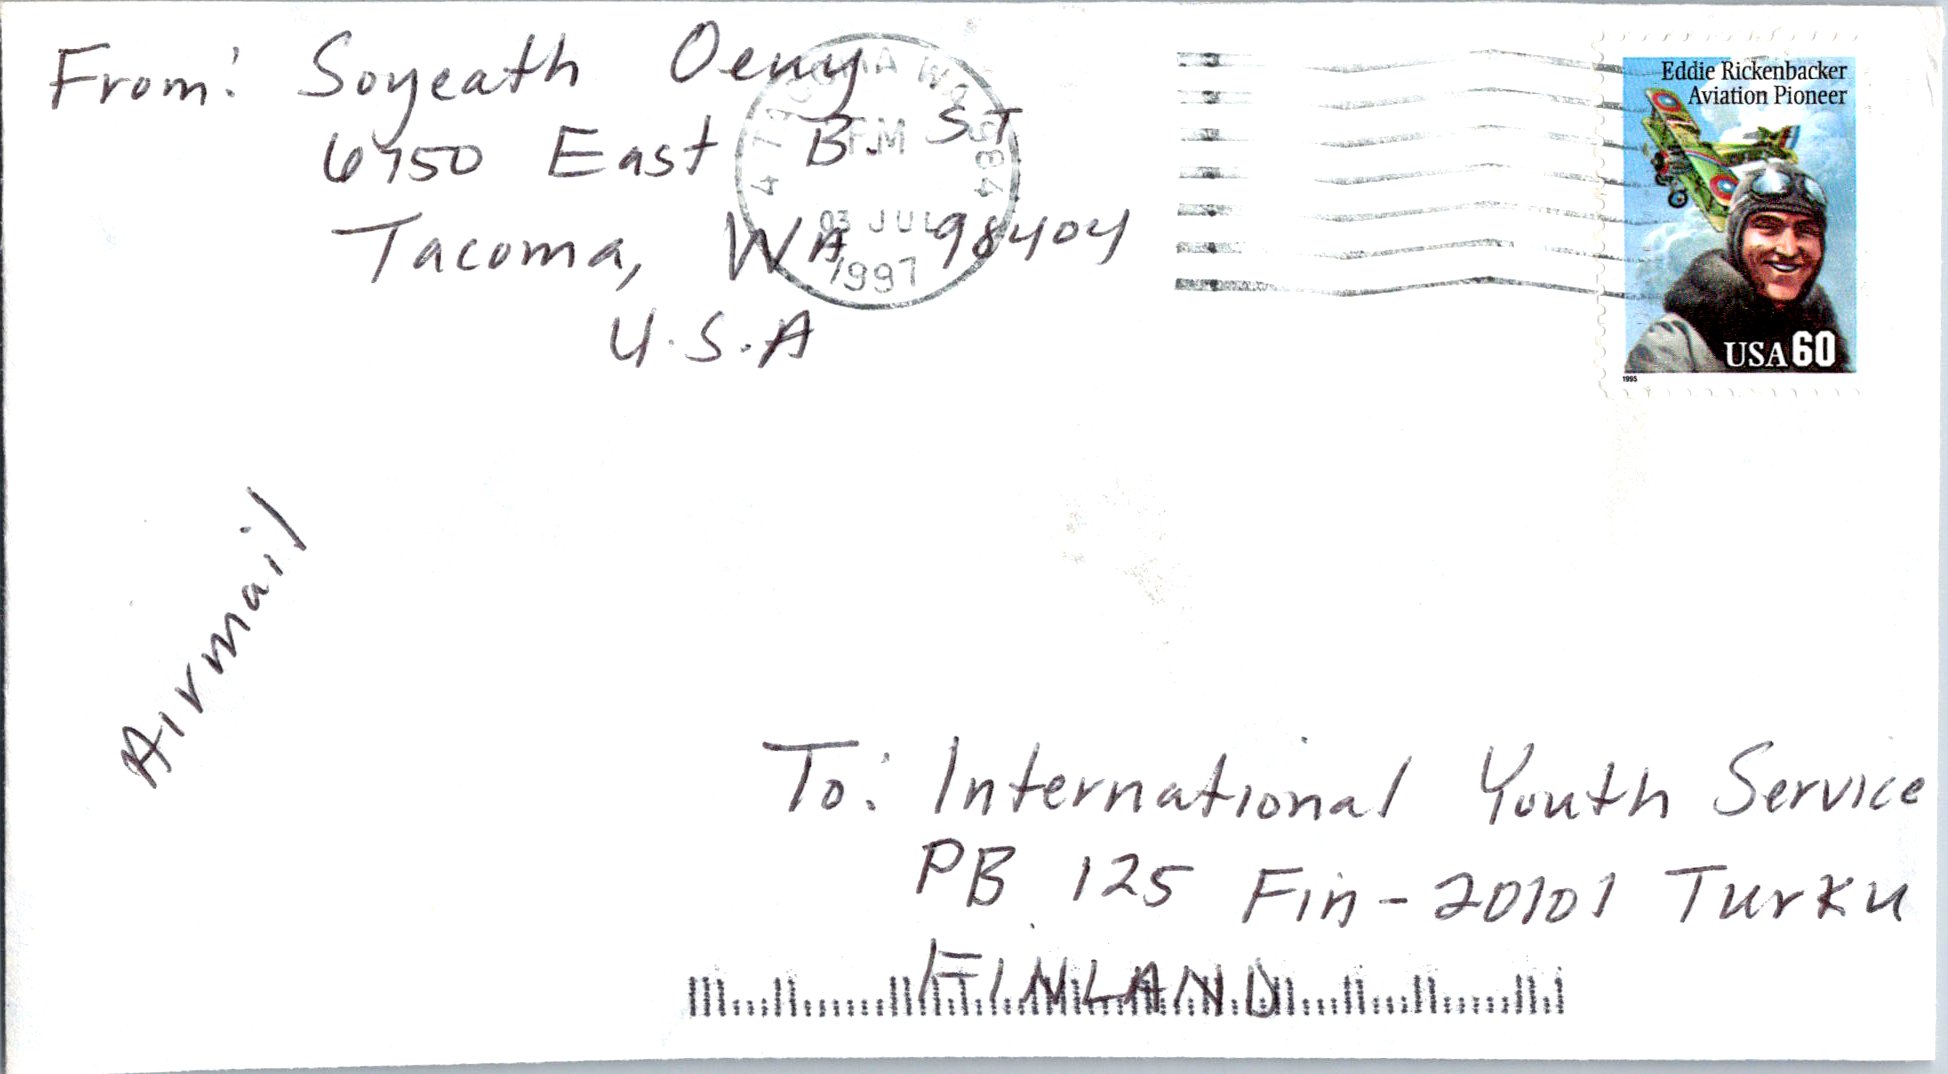 From: Soyeath Oeuy
6750 East B. ST
Tacoma, WA 98404
U.S.A
TACOMA WA 984
PM
03 JUL
1997
Eddie Rickenbacker
Aviation Pioneer
USA 60
1995
Airmail
To: International Youth Service
PB 125 Fin-20101 Turku
FINLAND